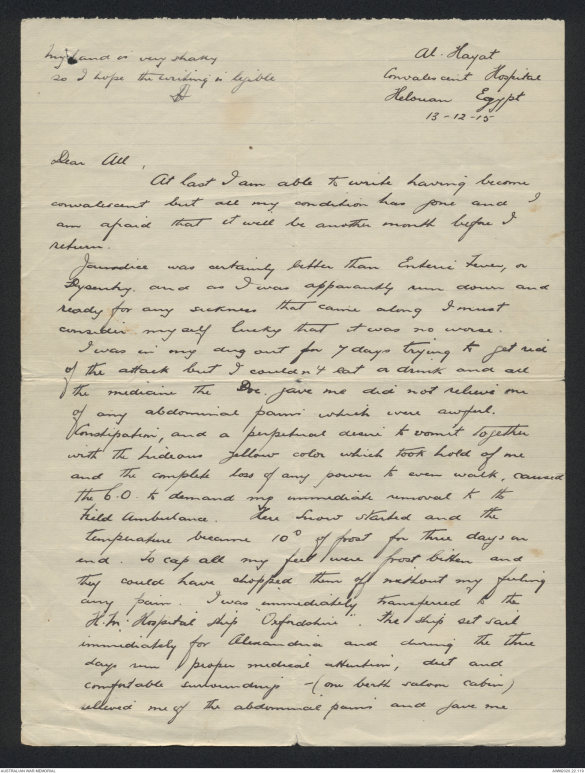 my hand is very shaky
so I hope the writing is legible
Al-Hayat
Convalescent Hospital
Helouan Egypt
13-12-15
Dear All,
At last I am able to write having become
convalescent but all my condition has gone and I
am afraid that it will be another month before I
return.
Jaundice was certainly better than Enteric Fever, or
Dysentry. and as I was apparantly run down and
ready for any sickness that came along I must
consider myself lucky that it was no worse.
I was in my dug out for 7 days trying to get rid
of the attack but I couldn't eat a drink and all
the medicine the Doc. gave me did not relieve me
of any abdominal pains which were awful.
Constipation, and a perpetual desire to vomit together
with the hideous yellow color which took hold of me
and the complete loss of any power to even walk, caused
the C.O. to demand my immediate removal to the
Field Ambulance. Here Snow started and the
temperature became 10° of frost for three days on
end. To cap all my feet were frost bitten and
they could have chopped them of without my feeling
any pain. I was immediately transferred to the
H.M. Hospital Ship Oxfordshire". The ship set sail
immediately for Alexandria and during the three
days run proper medical attention, diet and
comfortable surroundings - (one berth saloon cabin)
relieved me of the abdominal pains and gave me
AUSTRALIAN WAR MEMORIAL